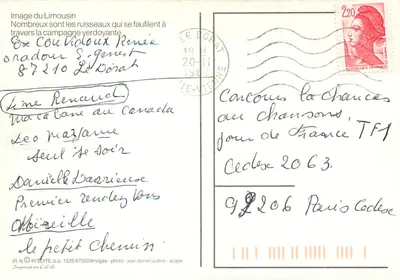 Image du Limousin
Nombreux sont les ruisseaux qui se faufilent à
travers la campagne verdoyante.
Ex Couvidoux Renée
oradour S. genest
87210 Le Dorat
Line Renaud
ma cabane au Canada
Leo
seul ce soir
Danielle Darrieuse
Premier rendez vous
Mireille
le petit chemin
LE DORAT
20-11
HTE-VIENNE
2,20
REPUBLIQUE FRANÇAISE
Concours la chances
au chansons.
jour de France TF1
Cedex 2063.
92206 Paris Cedex